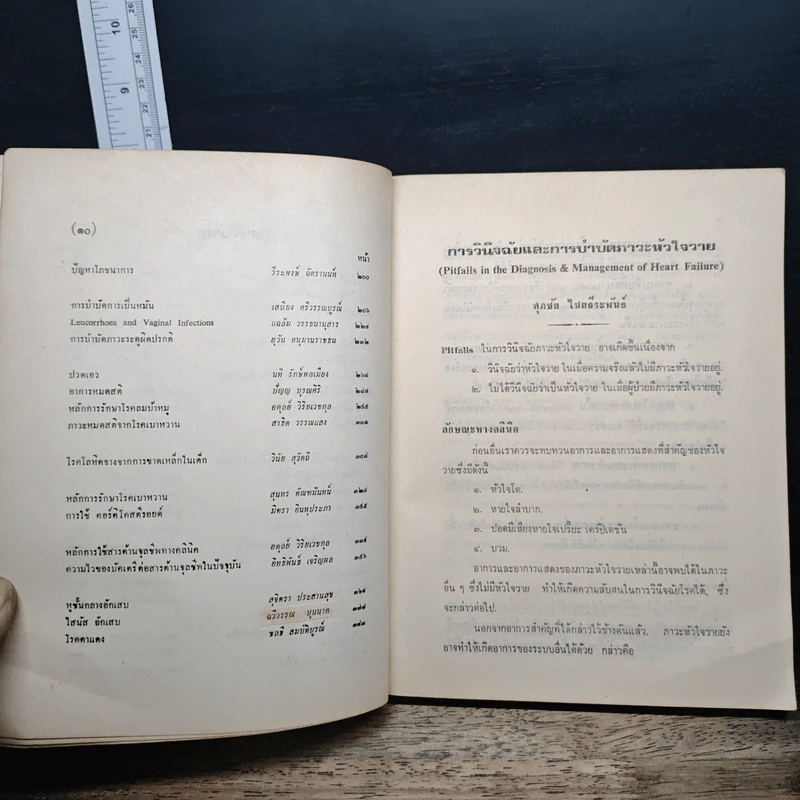 (๑๐)
หน้า
ปัญหาโภชนาการ วีระพงษ์ ฉัตรานนท์ ๒๐๐
การบำบัดการเป็นหมัน เสบียง ศรีวรรณบูรณ์ ๒๐๖
Leucorrhoea and Vaginal Infections เฉลิม วรรธนานุสาร ๒๒๔
การบำบัดภาวะระดูผิดปรกติ สุวัน อนุมานราชธน ๒๓๒
ปวดเอว นที รักษ์พลเมือง ๒๖๘
อาการหมดสติ ปัญญ บุรณศิริ ๒๘๔
หลักการรักษาโรคลมบ้าหมู อดุลย์ วิริยเวชกุล ๒๙๕
ภาวะหมดสติจากโรคเบาหวาน สาธิต วรรณแสง ๓๐๑
โรคโลหิตจางจากการขาดเหล็กในเด็ก วินัย สุวัตถี ๓๐๘
หลักการรักษาโรคเบาหวาน สุนทร ตัณฑนันทน์ ๓๒๔
การใช้ คอร์ติโคสตีรอยด์ มัทรา อินทุประภา
หลักการใช้สารต้านจุลชีพทางคลินิค อดุลย์ วิริยเวชกุล
ความไวของบัคเตรีต่อสารต้านจุลชีพในปัจจุบัน อิทธิพันธ์ เจริญผล ๓๕๖
หูชั้นกลางอักเสบ สุจิตรา ประสานสุข ๓๖๔
ไสนัส อักเสบ ฉวีวรรณ บุนนาค ๓๗๗
โรคตาแดง ชลธี สมบัติบูรณ์
การวินิจฉัยและการบำบัดภาวะหัวใจวาย
(Pitfalls in the Diagnosis & Management of Heart Failure)
ศุภชัย ไชยธีระพันธ์
Pitfalls ในการวินิจฉัยภาวะหัวใจวาย อาจเกิดขึ้นเนื่องจาก
๑. วินิจฉัยว่าหัวใจวาย ในเมื่อความจริงแล้วไม่มีภาวะหัวใจวายอยู่.
๒. ไม่ได้วินิจฉัยว่าเป็นหัวใจวาย ในเมื่อผู้ป่วยมีภาวะหัวใจวายอยู่.
ลักษณะทางคลินิค
ก่อนอื่นเราควรจะทบทวนอาการและอาการแสดงที่สำคัญของหัวใจ
วายซึ่งมีดังนี้
๑. หัวใจโต.
๒. หายใจลำบาก.
๓. ปอดมีเสียงหายใจเปรี๊ยะ เครปิเตชัน
๔. บวม.
อาการและอาการแสดงของภาวะหัวใจวายเหล่านี้อาจพบได้ในภาวะ
อื่น ๆ ซึ่งไม่มีหัวใจวาย ทำให้เกิดความสับสนในการวินิจฉัยโรคได้, ซึ่ง
จะกล่าวต่อไป.
นอกจากอาการสำคัญที่ได้กล่าวไว้ข้างต้นแล้ว, ภาวะหัวใจวายยัง
อาจทำให้เกิดอาการของระบบอื่นได้ด้วย กล่าวคือ
9
10
21
22
23
24
25
26